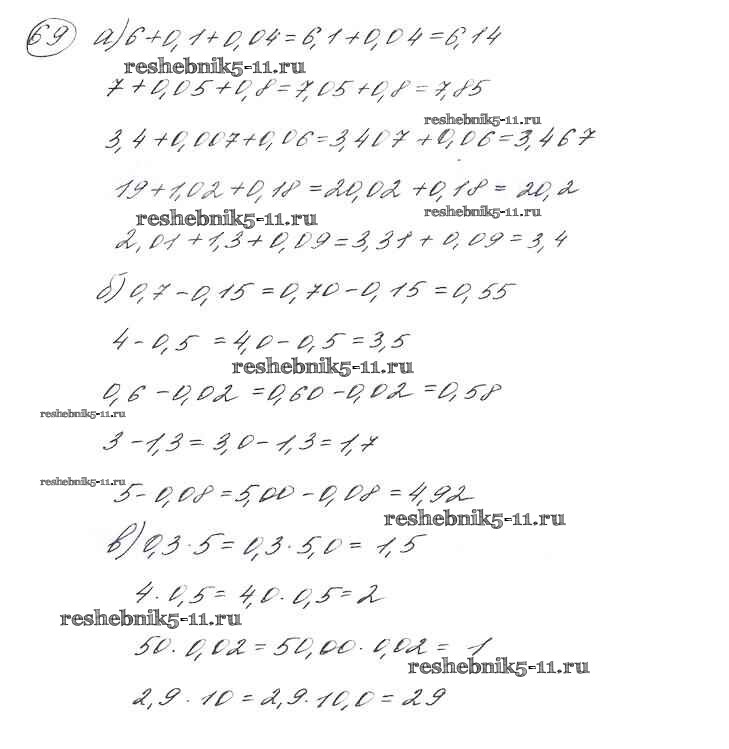 69 а) 6+0,1+0,04=6,1+0,04=6,14
reshebnik5-11.ru
7+0,05+0,8=7,05+0,8=7,85
reshebnik5-11.ru
3,4+0,007+0,06=3,407+0,06=3,467
19+1,02+0,18=20,02+0,18=20,2
reshebnik5-11.ru reshebnik5-11.ru
2,01+1,3+0,09=3,31+0,09=3,4
б) 0,7-0,15=0,70-0,15=0,55
4-0,5=4,0-0,5=3,5
reshebnik5-11.ru
0,6-0,02=0,60-0,02=0,58
reshebnik5-11.ru
3-1,3=3,0-1,3=1,7
reshebnik5-11.ru
5-0,08=5,00-0,08=4,92
reshebnik5-11.ru
в) 0,3·5=0,3·5,0=1,5
4·0,5=4,0·0,5=2
reshebnik5-11.ru
50·0,02=50,00·0,02=1
reshebnik5-11.ru
2,9·10=2,9·10,0=29